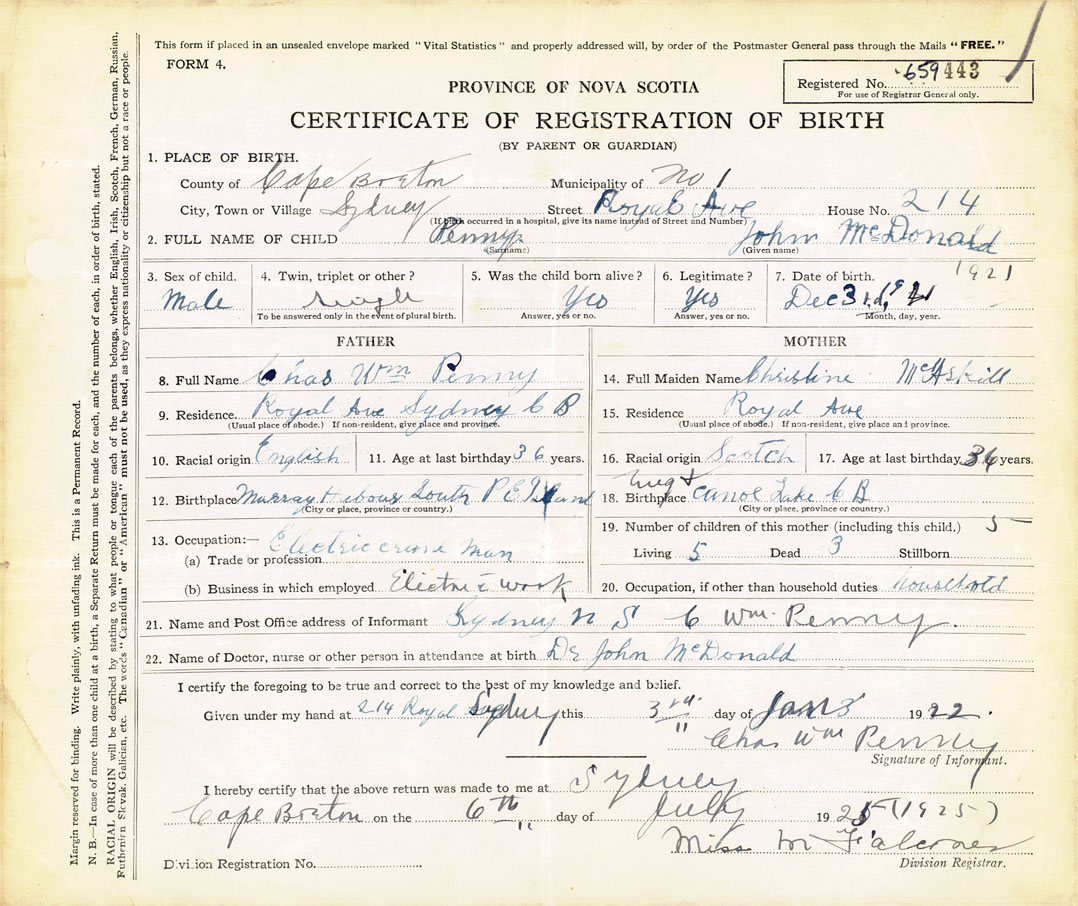 This form if placed in an unsealed envelope marked "Vital Statistics" and properly addressed will, by order of the Postmaster General pass through the Mails "FREE."
FORM 4.
Registered No. 659443
For use of Registrar General only.
PROVINCE OF NOVA SCOTIA
CERTIFICATE OF REGISTRATION OF BIRTH
(BY PARENT OR GUARDIAN)
1. PLACE OF BIRTH.
County of Cape Breton Municipality of No 1
City, Town or Village Sydney Street Royal Ave House No. 214
(If birth occurred in a hospital, give its name instead of Street and Number)
2. FULL NAME OF CHILD Penny John McDonald
(Surname) (Given name)
1921
3. Sex of child. 4. Twin, triplet or other? 5. Was the child born alive? 6. Legitimate? 7. Date of birth.
Male Single Yes Yes Dec 3rd, 1921
To be answered only in the event of plural birth. Answer, yes or no. Answer, yes or no. Month, day, year.
FATHER
8. Full Name Chas Wm Penny
9. Residence. Royal Ave Sydney C B
(Usual place of abode.) If non-resident, give place and province.
10. Racial origin English 11. Age at last birthday 36 years.
12. Birthplace Murray Habous South P E Island
(City or place, province or country.)
13. Occupation:—
(a) Trade or profession. Electric crane man
(b) Business in which employed Electric work
MOTHER
14. Full Maiden Name Christine McAskill
15. Residence Royal Ave
(Usual place of abode.) If non-resident, give place and province.
16. Racial origin Scotch 17. Age at last birthday 36 years.
18. Birthplace Canoe Lake C B
(City or place, province or country.)
19. Number of children of this mother (including this child.) 5
Living 5 Dead 3 Stillborn
20. Occupation, if other than household duties household
21. Name and Post Office address of Informant Sydney N S C Wm. Penny.
22. Name of Doctor, nurse or other person in attendance at birth Dr John McDonald
I certify the foregoing to be true and correct to the best of my knowledge and belief.
Given under my hand at 214 Royal Sydney this 3rd day of Jan 3 1922.
Chas Wm Penny
Signature of Informant.
I hereby certify that the above return was made to me at Sydney
Cape Breton on the 6th day of July 1925 (1925)
Miss M
Division Registration No. Division Registrar.
Margin reserved for binding. Write plainly, with unfading ink. This is a Permanent Record.
N. B.—In case of more than one child at a birth, a Separate Return must be made for each, and the number of each, in order of birth, stated.
RACIAL ORIGIN will be described by stating to what people or tongue each of the parents belongs, whether English, Irish, Scotch, French, German, Russian,
Ruthenian, Slovak, Galician, etc. The words "Canadian" or "American" must not be used, as they express nationality or citizenship but not a race or people.